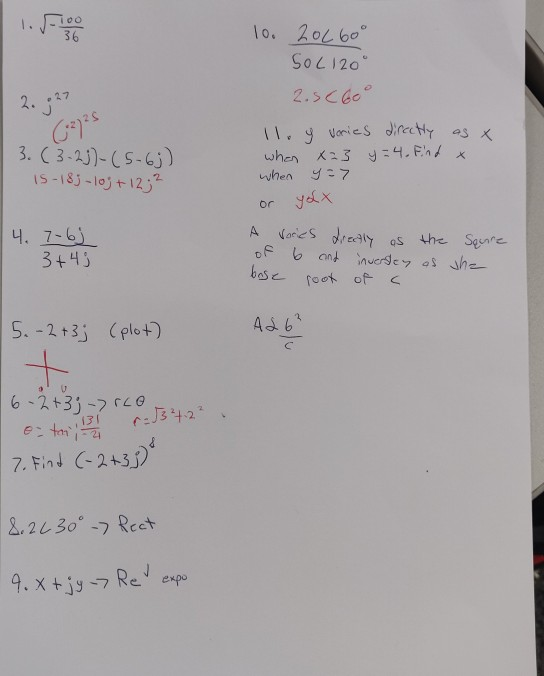 1. √-100/36
2. j^27
(j^2)^25
3. (3-2j)-(5-6j)
15-18j-10j+12j^2
4. 7-6j
3+4j
5. -2+3j (plot)
6 -2+3j -> r<θ
θ = tan^-1 |3|/|-2| r=√3^2+-2^2
7. Find (-2+3j)^8
8. 2<30° -> Rect
9. x+jy -> Re^j expo
10. 20<60°
50<120°
2.5<60°
11. y varies directly as x
when x=3 y=4. Find x
when y=7
or y∝x
A varies directly as the Square
of b and inversley as the
base root of c
A∝ b^2
c